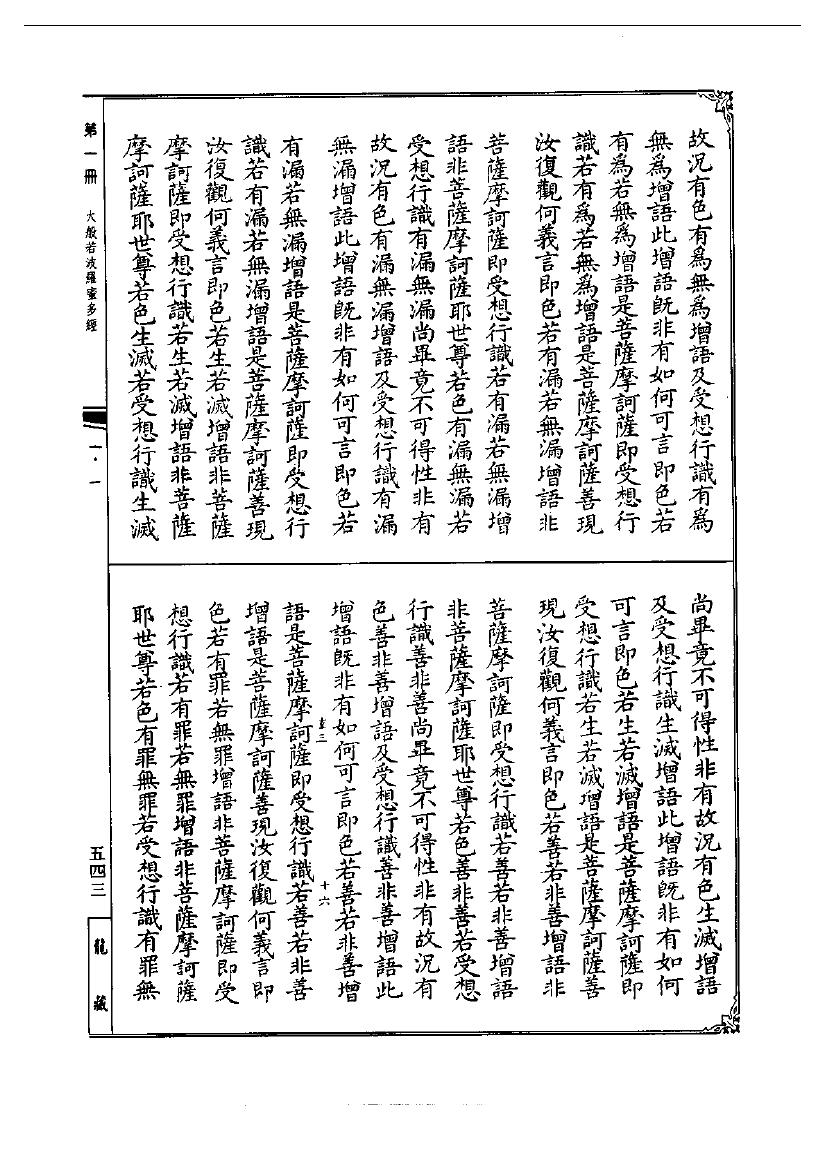 故況有色有為無為增語及受想行識有為
無為增語此增語既非有如何可言即色若
有為若無為增語是菩薩摩訶薩即受想行
識若有為若無為增語是菩薩摩訶薩善現
汝復觀何義言即色若有漏若無漏增語非
菩薩摩訶薩即受想行識若有漏若無漏增
語非菩薩摩訶薩耶世尊若色有漏無漏若
受想行識有漏無漏尚畢竟不可得性非有
故況有色有漏無漏增語及受想行識有漏
無漏增語此增語既非有如何可言即色若
有漏若無漏增語是菩薩摩訶薩即受想行
識若有漏若無漏增語是菩薩摩訶薩善現
汝復觀何義言即色若生若滅增語非菩薩
摩訶薩即受想行識若生若滅增語非菩薩
摩訶薩耶世尊若色生滅若受想行識生滅
尚畢竟不可得性非有故況有色生滅增語
及受想行識生滅增語此增語既非有如何
可言即色若生若滅增語是菩薩摩訶薩即
受想行識若生若滅增語是菩薩摩訶薩善
現汝復觀何義言即色若善若非善增語非
菩薩摩訶薩即受想行識若善若非善增語
非菩薩摩訶薩耶世尊若色善非善若受想
行識善非善尚畢竟不可得性非有故況有
色善非善增語及受想行識善非善增語此
增語既非有如何可言即色若善若非善增
語是菩薩摩訶薩即受想行識若善若非善
增語是菩薩摩訶薩善現汝復觀何義言即
色若有罪若無罪增語非菩薩摩訶薩即受
想行識若有罪若無罪增語非菩薩摩訶薩
耶世尊若色有罪無罪若受想行識有罪無
十六
第一冊 大般若波羅蜜多經
一·一
五四三
龍藏